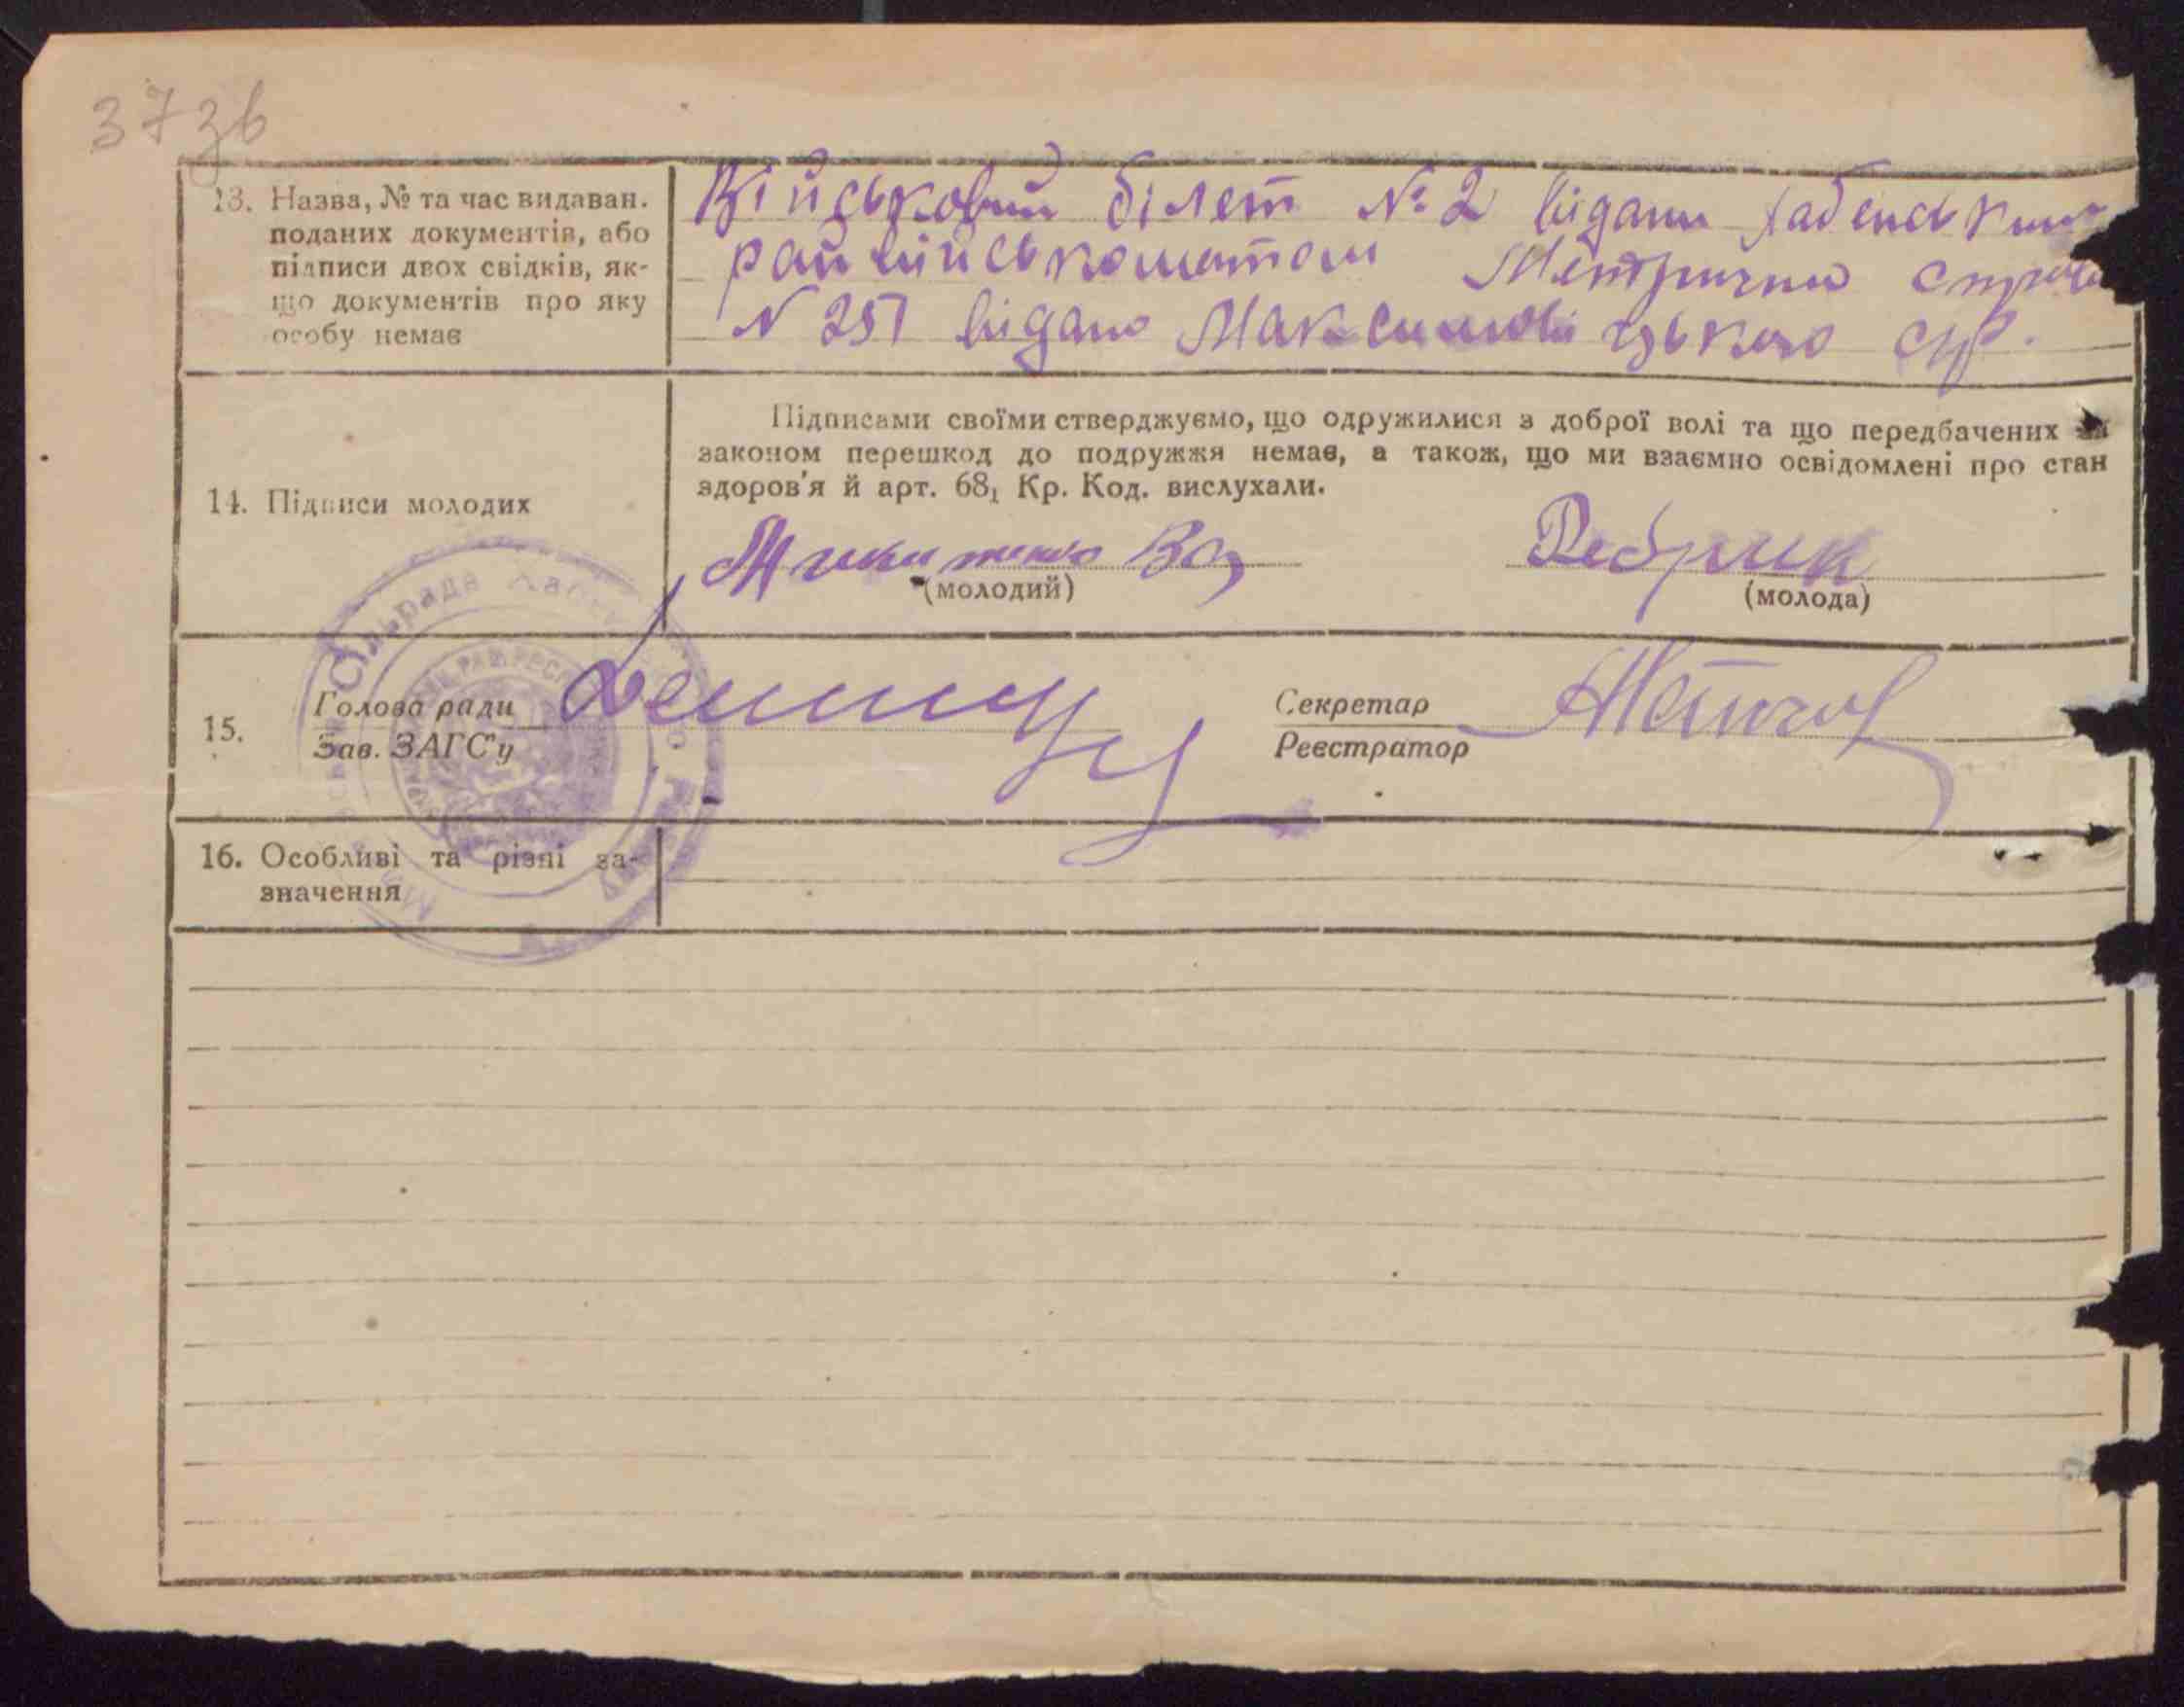 37зв
13. Назва, № та час видаван.
поданих документів, або
підписи двох свідків, як-
що документів про яку
особу немає
Військовий білет № 2 відани Хабенським
райвійськоматом Метрична
N 251 відано Максимовіцькою с/р.
14. Підписи молодих
Підписами своїми стверджуємо, що одружилися з доброї волі та що передбачених за
законом перешкод до подружжя немає, а також, що ми взаємно освідомлені про стан
здоров'я й арт. 68₁ Кр. Код. вислухали.
Микитенко
Ребрик
(молодий)
(молода)
Сільрада
15. Голова ради
Зав. ЗАГС'у
Секретар
Реєстратор
16. Особливі та різні за-
значення